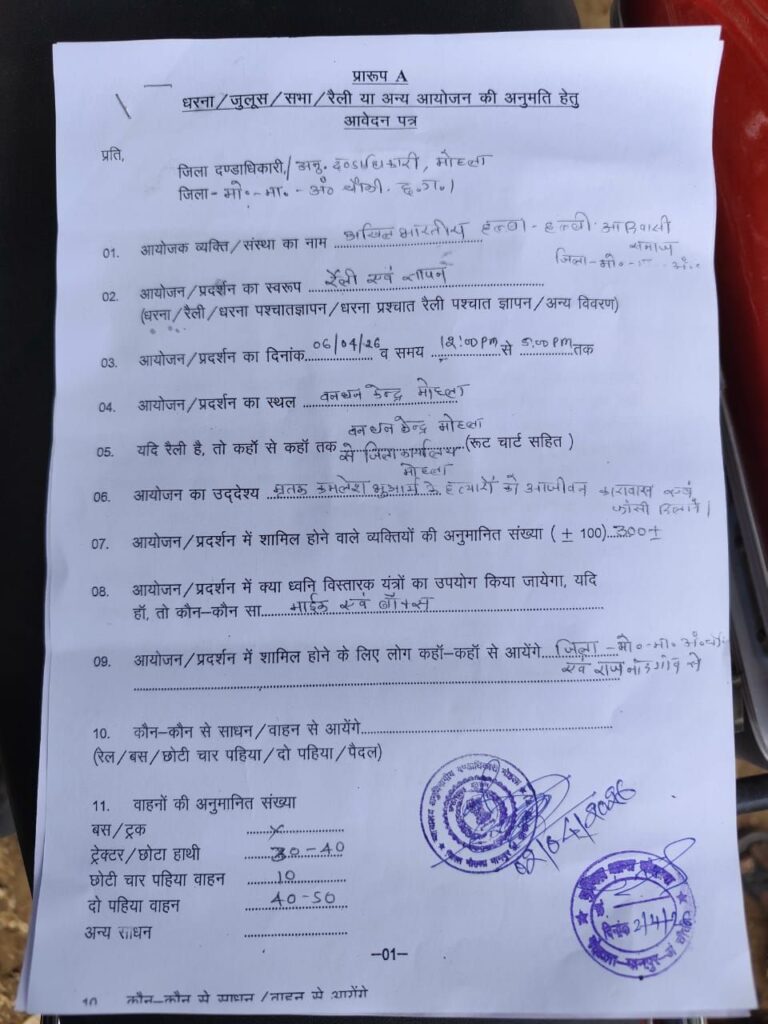 प्रारूप A
धरना/जुलूस/सभा/रैली या अन्य आयोजन की अनुमति हेतु
आवेदन पत्र
प्रति,
जिला दण्डाधिकारी/अनु. दण्डाधिकारी, मोहला
जिला- मो०-मा०-अं० चौकी छ.ग.।
01. आयोजक व्यक्ति/संस्था का नाम अखिल भारतीय हल्बा-हल्बी आदिवासी
समाज
जिला-मो०- अं.०
02. आयोजन/प्रदर्शन का स्वरूप रैली एवं ज्ञापन
(धरना/रैली/धरना पश्चातज्ञापन/धरना प्रश्चात रैली पश्चात ज्ञापन/अन्य विवरण)
03. आयोजन/प्रदर्शन का दिनांक 06/04/26 व समय 12:00 PM से 5:00 PM तक
04. आयोजन/प्रदर्शन का स्थल वनधन केन्द्र मोहला
वनधन केन्द्र मोहला
05. यदि रैली है, तो कहॉ से कहॉ तक से जिला कार्यालय (रूट चार्ट सहित )
मोहला
06. आयोजन का उद्देश्य मृतक कमलेश भुआर्य के हत्यारों को आजीवन कारावास एवं
फांसी दिलाने।
07. आयोजन/प्रदर्शन में शामिल होने वाले व्यक्तियों की अनुमानित संख्या ( ± 100) 300±
08. आयोजन/प्रदर्शन में क्या ध्वनि विस्तारक यंत्रों का उपयोग किया जायेगा, यदि
हॉ, तो कौन-कौन सा माईक एवं बॉक्स
09. आयोजन/प्रदर्शन में शामिल होने के लिए लोग कहॉ-कहॉ से आयेंगे जिला-मो०-मा. अं.चौ.
एवं राजनांदगांव से
10. कौन-कौन से साधन/वाहन से आयेंगे
(रेल/बस/छोटी चार पहिया/दो पहिया/पैदल)
11. वाहनों की अनुमानित संख्या
बस/ट्रक x
ट्रेक्टर/छोटा हाथी 30-40
छोटी चार पहिया वाहन 10
दो पहिया वाहन 40-50
अन्य साधन
02/04/2026
दिनांक 2/4/26
-01-
10 कौन-कौन से साधन/वाहन से आयेंगे